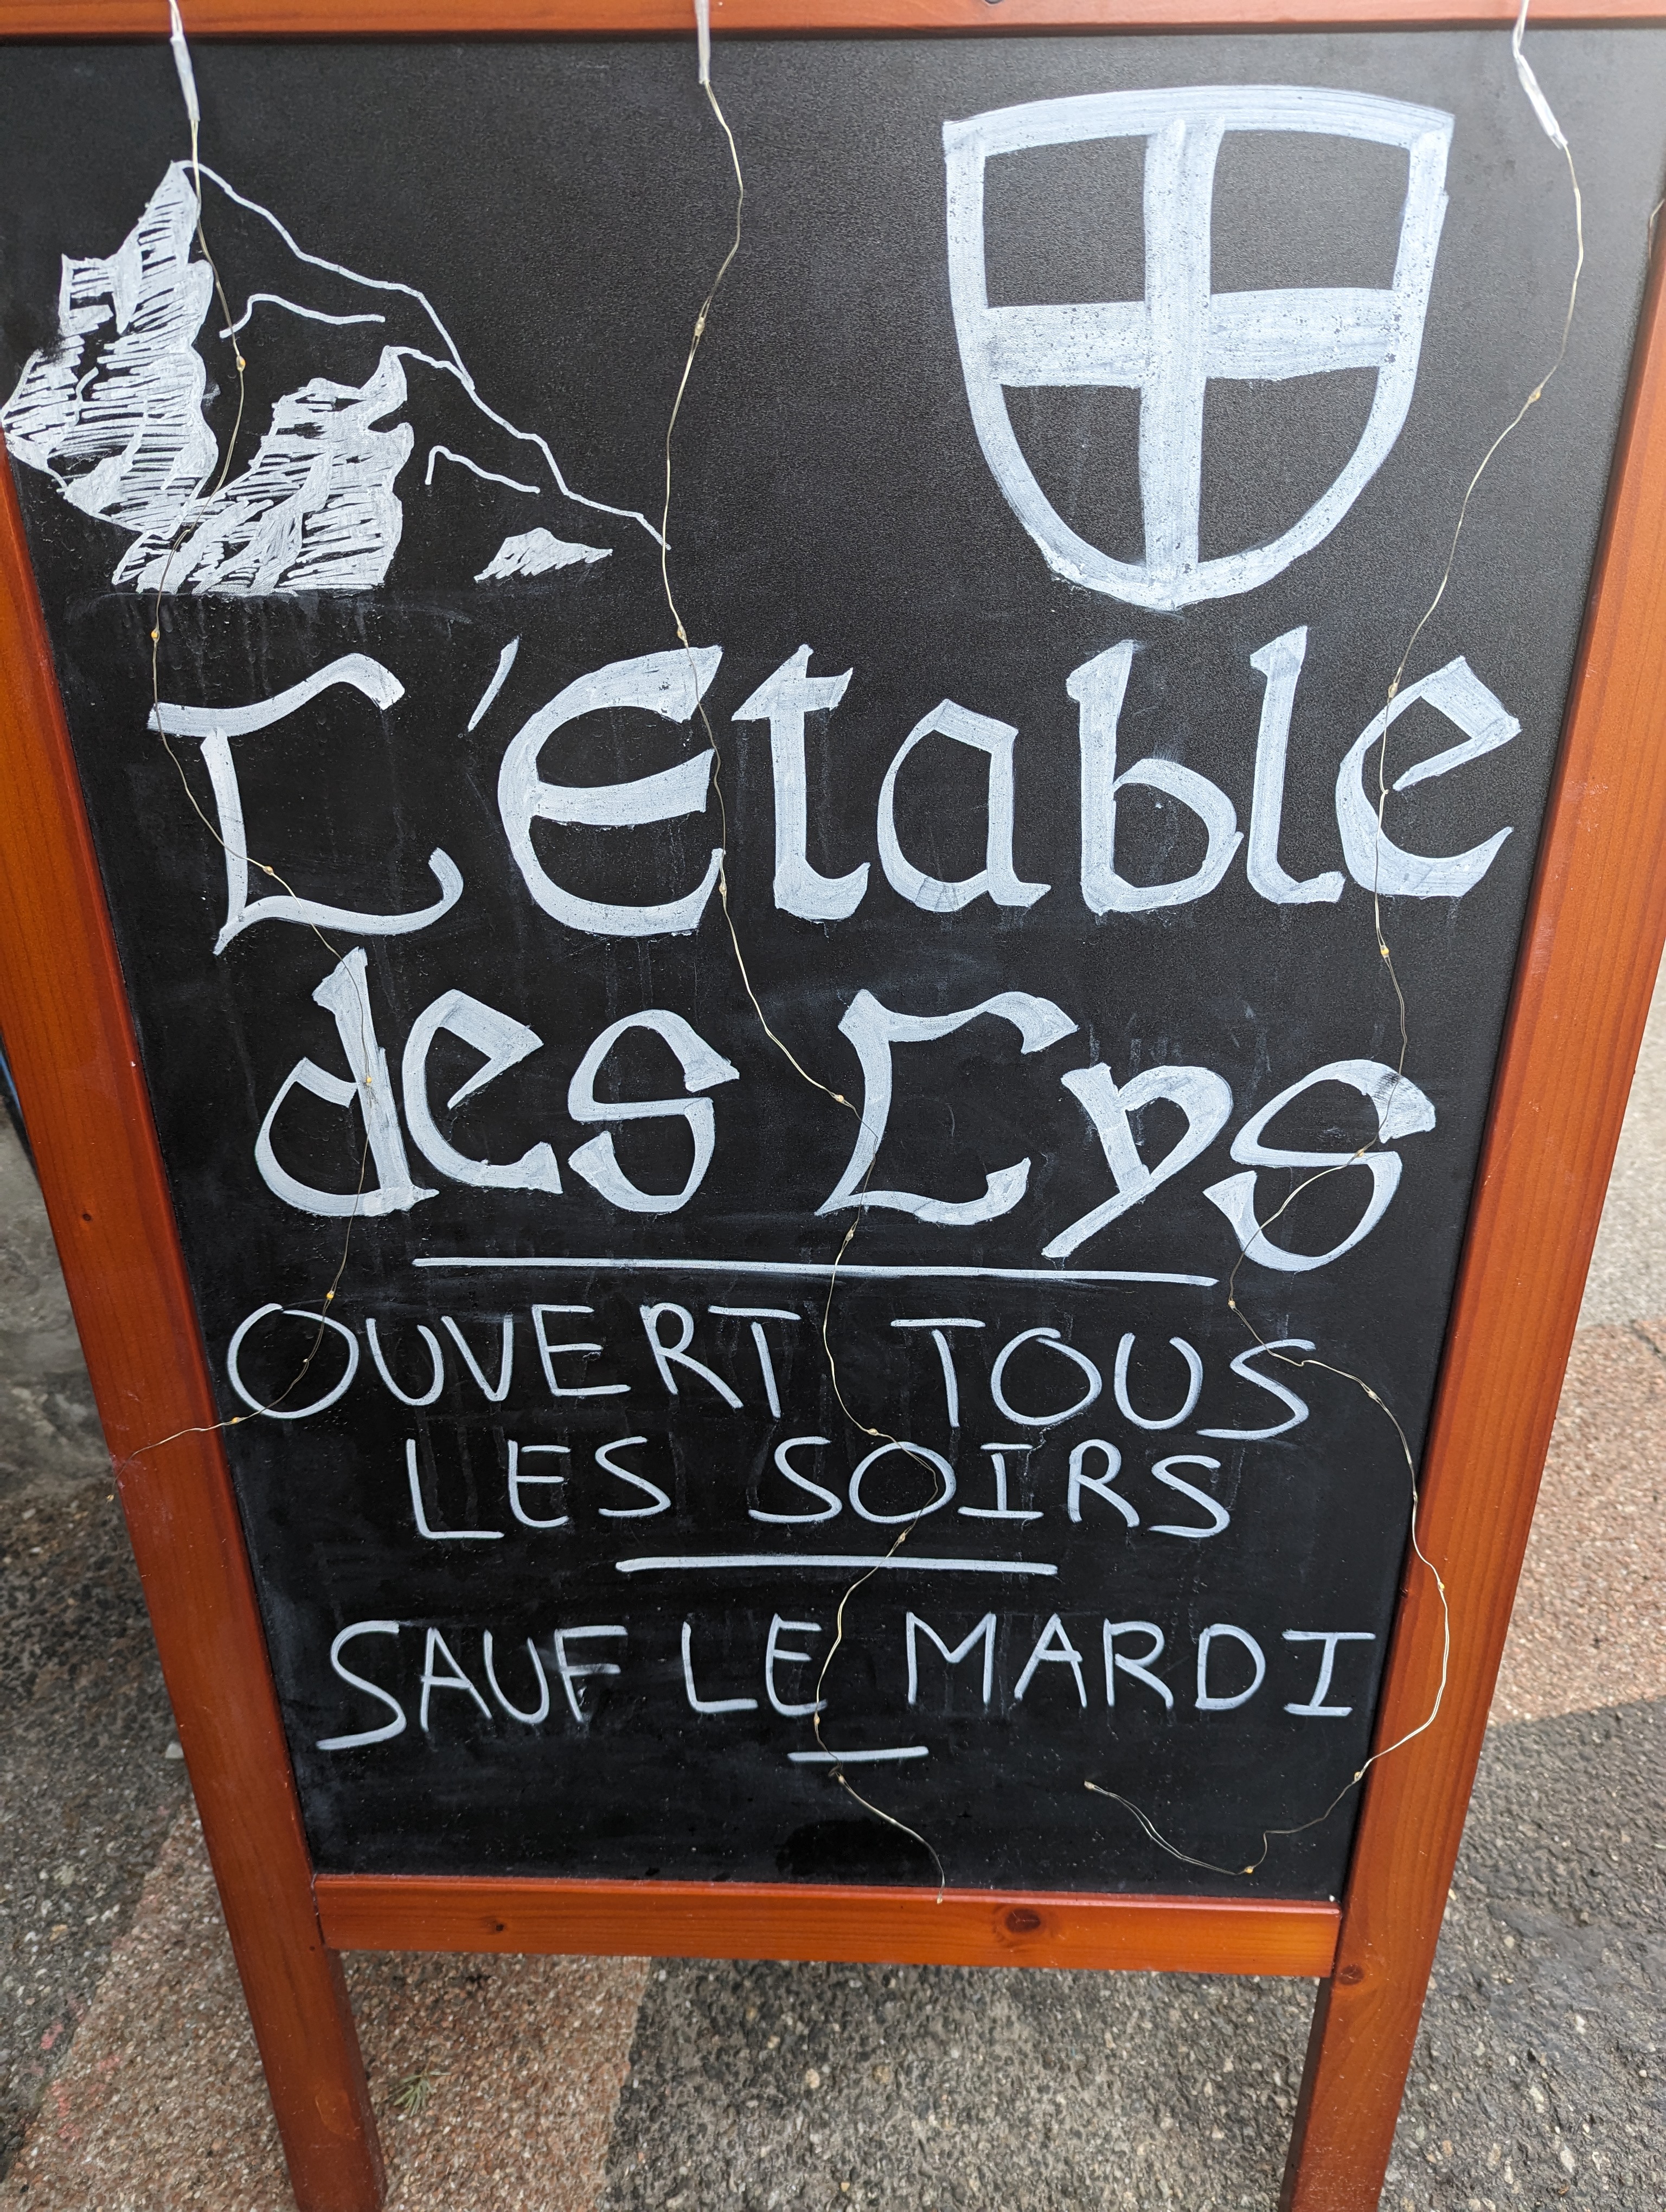 L'Etable
des Lys
OUVERT TOUS
LES SOIRS
SAUF LE MARDI